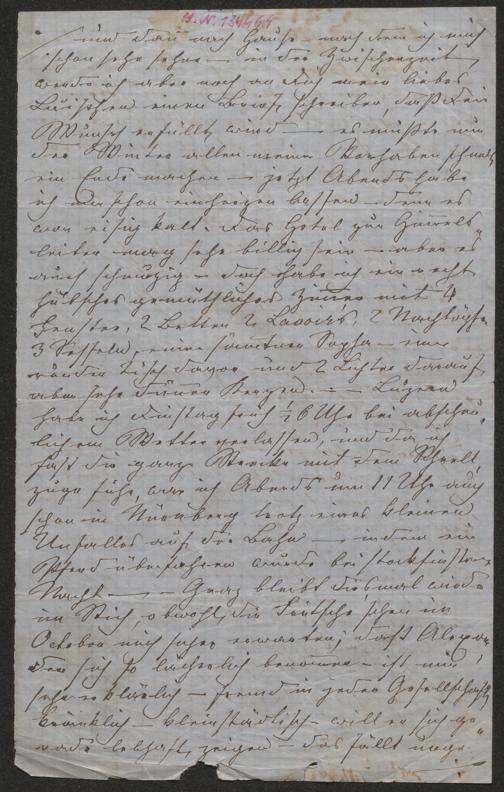 H.N. 124461
und dann nach Hause – nach dem ich mich
schon sehr sehne – in der Zwischenzeit,
werde ich aber noch an Dich mein liebes
Luischen einen Brief schreiben, daß Dein
Wunsch erfüllt wird – es müßte nun
der Winter allen meinen Vorhaben schnell
ein Ende machen – jetzt Abends habe
ich mir schon einheizen lassen – denn es
war eisig kalt. Das Hotel zur Himmels-
leiter – mag sehr billig sein – aber es
auch schmutzig – doch habe ich ein recht
hübsches gemüthliches Zimmer mit 4
Fenster, 2 Betten, 2 Lavoirs, 2 Nachttöpfe
3 Sesseln, eine Sopha – einen
runden Tisch davor und 2 Lichter darauf
aber sehr dünne Kerzen. – Luzern
habe ich Dienstag früh ½ 6 Uhr bei abscheu-
lichem Wetter verlassen, und da ich
fast die ganze Strecke mit dem Schnell-
zuge fuhr, war ich Abends um 11 Uhr auch
schon in Nürnberg trotz eines kleinen
Unfalles auf der Bahn – indem ein
Pferd überfahren wurde bei stockfinsterer
Nacht – Graz bleibt diesmal wieder
im Stich, obwohl die schon im
October mich sicher erwarten; daß Alexan-
der sich so lächerlich benommen – ist mir
sehr erklärlich – fremd in jeder Gesellschaft,
kränklich – kleinstädtisch – will er sich ge-
rade lebhaft, zeigen – das fällt